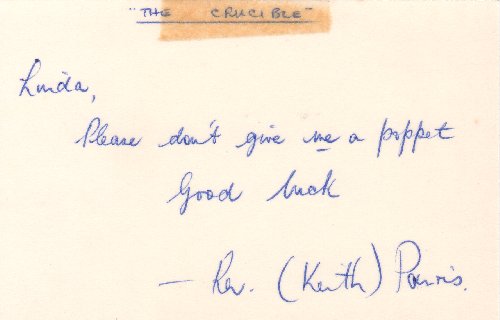 "THE CRUCIBLE"
Linda,
Please don't give me a poppet
Good luck
— Rev. (Keith) Parris.